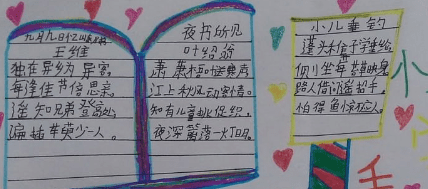 九月九日忆山东兄弟
王维
独在异乡为异客,
每逢佳节倍思亲。
遥知兄弟登高处,
遍插茱萸少一人。
夜书所见
叶绍翁
萧萧梧叶送寒声,
江上秋风动客情。
知有儿童挑促织,
夜深篱落一灯明。
小儿垂钓
蓬头稚子学垂纶,
侧坐莓苔草映身。
路人借问遥招手,
怕得鱼惊不应人。
小
手